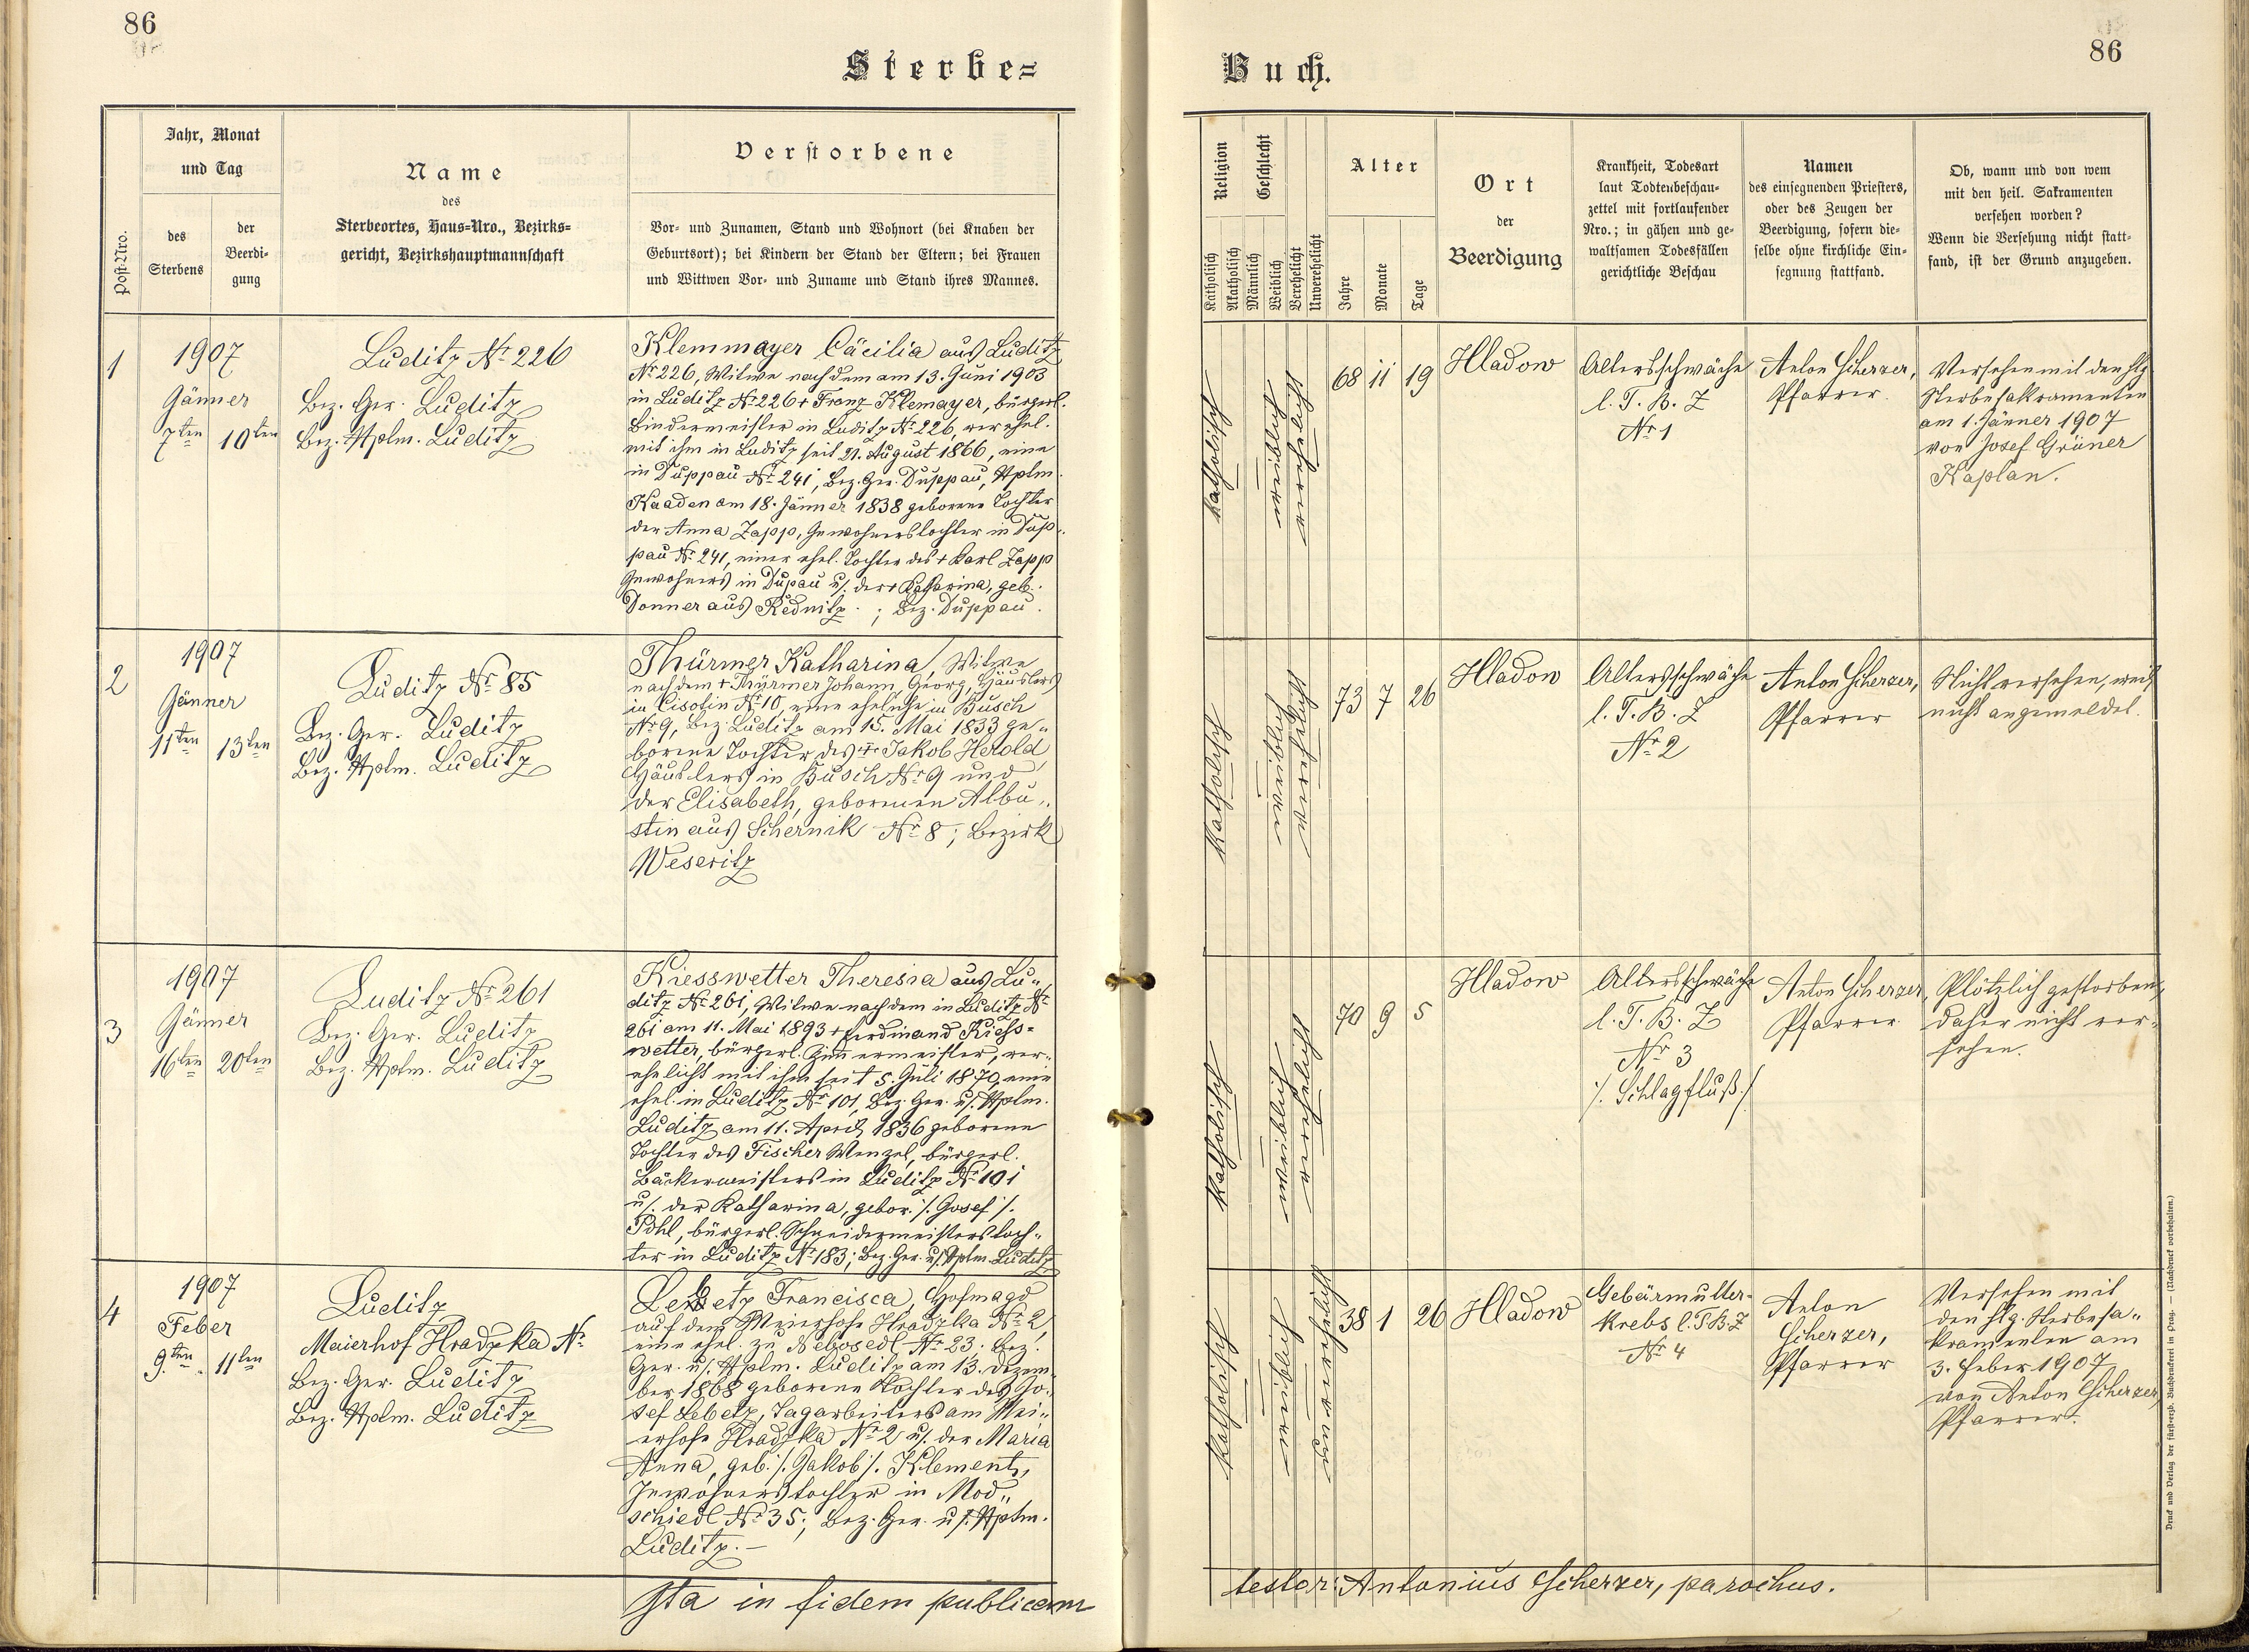 86
Sterbe=
Jahr, Monat
und Tag
Post-Nro.
des
Sterbens
der
Beerdi-
gung
Name
des
Sterbeortes, Haus=Nro., Bezirks=
gericht, Bezirkshauptmannschaft
Verstorbene
Vor- und Zunamen, Stand und Wohnort (bei Knaben der
Geburtsort); bei Kindern der Stand der Eltern; bei Frauen
und Wittwen Vor- und Zuname und Stand ihres Mannes.
1
1907
Jänner
7ten 10ten
Luditz No 226
Bez. Ger. Luditz
Bez. Hptm. Luditz
Klemmayer Cäcilia aus Luditz
No 226, Witwe nach dem am 13. Juni 1903
in Luditz No 226 + Franz Klemayer, bürgerl.
Bindermeister in Luditz No 226, verehel.
mit ihm in Luditz seit 21. August 1866, eine
in Duppau No 241, Bez. Ger. Duppau, Hptm.
Kaaden am 18. Jänner 1838 geborene Tochter
der Anna Zapp, Inwohnerstochter in Dup-
pau No 241, einer ehel. Tochter des + Karl Zapp
Inwohners in Dupau u/. der + Katharina, geb.
Donner aus Rednitz.; Bez. Duppau.
2
1907
Jänner
11ten 13ten
Luditz No 85
Bez. Ger. Luditz
Bez. Hptm. Luditz
Thürmer Katharina, Witwe
nach dem + Thürmer Johann Georg, Häuslers
in Cisotin No 10, eine eheliche in Busch
No 9, Bez. Luditz am 15. Mai 1833 ge-
borene Tochter des + Jakob Herold
Häuslers in Busch No 9 und
der Elisabeth, geborenen Albu-
stin aus Schernik No 8; Bezirk
Weseritz
3
1907
Jänner
16ten 20ten
Luditz No 261
Bez. Ger. Luditz
Bez. Hptm. Luditz
Kiesswetter Theresia aus Lu-
ditz No 261, Witwe nach dem in Luditz No
261 am 11. Mai 1893 + Ferdinand Kiess=
wetter, bürgerl. Zimmermeister, ver-
ehelicht mit ihm seit 5. Juli 1870, eine
ehel. in Luditz No 101, Bez. Ger. u/. Hptm.
Luditz am 11. April 1836 geborene
Tochter des Fischer Wenzel, bürgerl.
Bäckermeisters in Luditz No 101
u/. der Katharina, gebor. /. Josef /.
Pohl, bürgerl. Schneidermeisterstoch-
ter in Luditz No 183; Bez. Ger. u/. Hptm. Luditz
4
1907
Feber
9ten 11ten
Luditz
Maierhof Hradzka No
Bez. Ger. Luditz
Bez. Hptm. Luditz
Francisca, Hofmagd
auf dem Meierhofe Hradzka No 2,
eine ehel. zu Nebosedl No 23; Bez.
Ger. u/. Hptm. Luditz am 13. Dezem-
ber 1868 geborene Tochter des Jo-
sef Lebetz, Tagarbeiters am Mei-
erhofe Hradzka No 2 u/. der Maria
Anna, geb. /. Jakob /. Klement,
Inwohnerstochter in Mod-
schiedl No 35; Bez. Ger. u/. Hptm.
Luditz. —
Ita in fidem publicam
86
Buch.
Religion
Geschlecht
Katholisch
Akatholisch
Männlich
Weiblich
Verehelicht
Unverehelicht
Alter
Jahre
Monate
Tage
Ort
der
Beerdigung
Krankheit, Todesart
laut Todtenbeschau-
zettel mit fortlaufender
Nro.; in gähen und ge-
waltsamen Todesfällen
gerichtliche Beschau
Namen
des einsegnenden Priesters,
oder des Zeugen der
Beerdigung, sofern die-
selbe ohne kirchliche Ein-
segnung stattfand.
Ob, wann und von wem
mit den heil. Sakramenten
versehen worden?
Wenn die Versehung nicht statt-
fand, ist der Grund anzugeben.
katholisch
weiblich
verehelicht
68 11 19
Hladow
Altersschwäche
l. T. B. Z
No 1
Anton Scherzer,
Pfarrer.
Versehen mit den hlg.
Sterbesakramenten
am 1. Jänner 1907
von Josef Grüner
Kaplan.
katholisch
weiblich
verehelicht
73 7 26
Hladow
Altersschwäche
l. T. B. Z
No 2
Anton Scherzer,
Pfarrer
Nicht versehen, weil
nicht angemeldet.
katholisch
weiblich
verehelicht
70 9 5
Hladow
Altersschwäche
l. T. B. Z
No 3
/. Schlagfluß /.
Anton Scherzer,
Pfarrer.
Plötzlich gestorben,
daher nicht ver-
sehen.
katholisch
weiblich
unverehelicht
38 1 26
Hladow
Gebärmutter-
krebs l. T. B. Z
No 4
Anton
Scherzer,
Pfarrer
Versehen mit
den hlg. Sterbesa-
kramenten am
3. Feber 1907
von Anton Scherzer,
Pfarrer.
testor: Antonius Scherzer, parochus.
Druck und Verlag der fürst-erzb. Buchdruckerei in Prag. — (Nachdruck vorbehalten.)